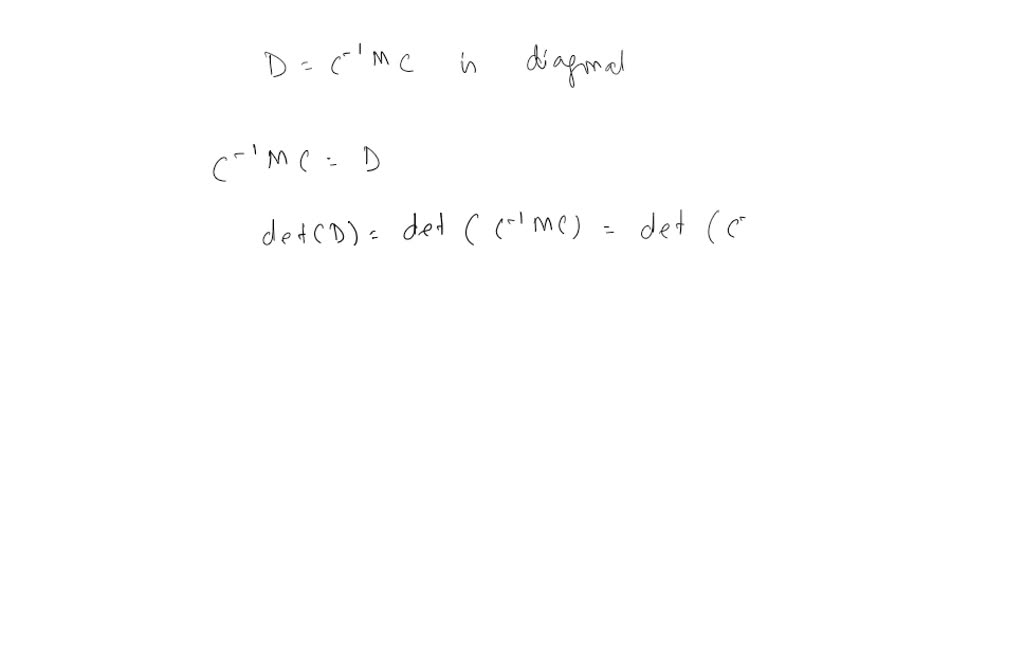 D = C⁻¹ M C is diagonal
C⁻¹ M C = D
det(D) = det ( C⁻¹ M C ) = det ( C⁻